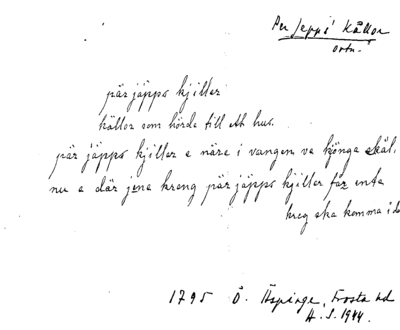 Per Jepps' Källor
ortn.
pär jäpps kjiller
källor som hörde till ett hus.
pär jäpps kjiller e näre i vangen ve kjönga skäl.
nu e där jena krang pär jäpps kjiller får enta
kreg ska komma i do
1795 Ö. Äspinge, Frosta hd
H. S. 1944.